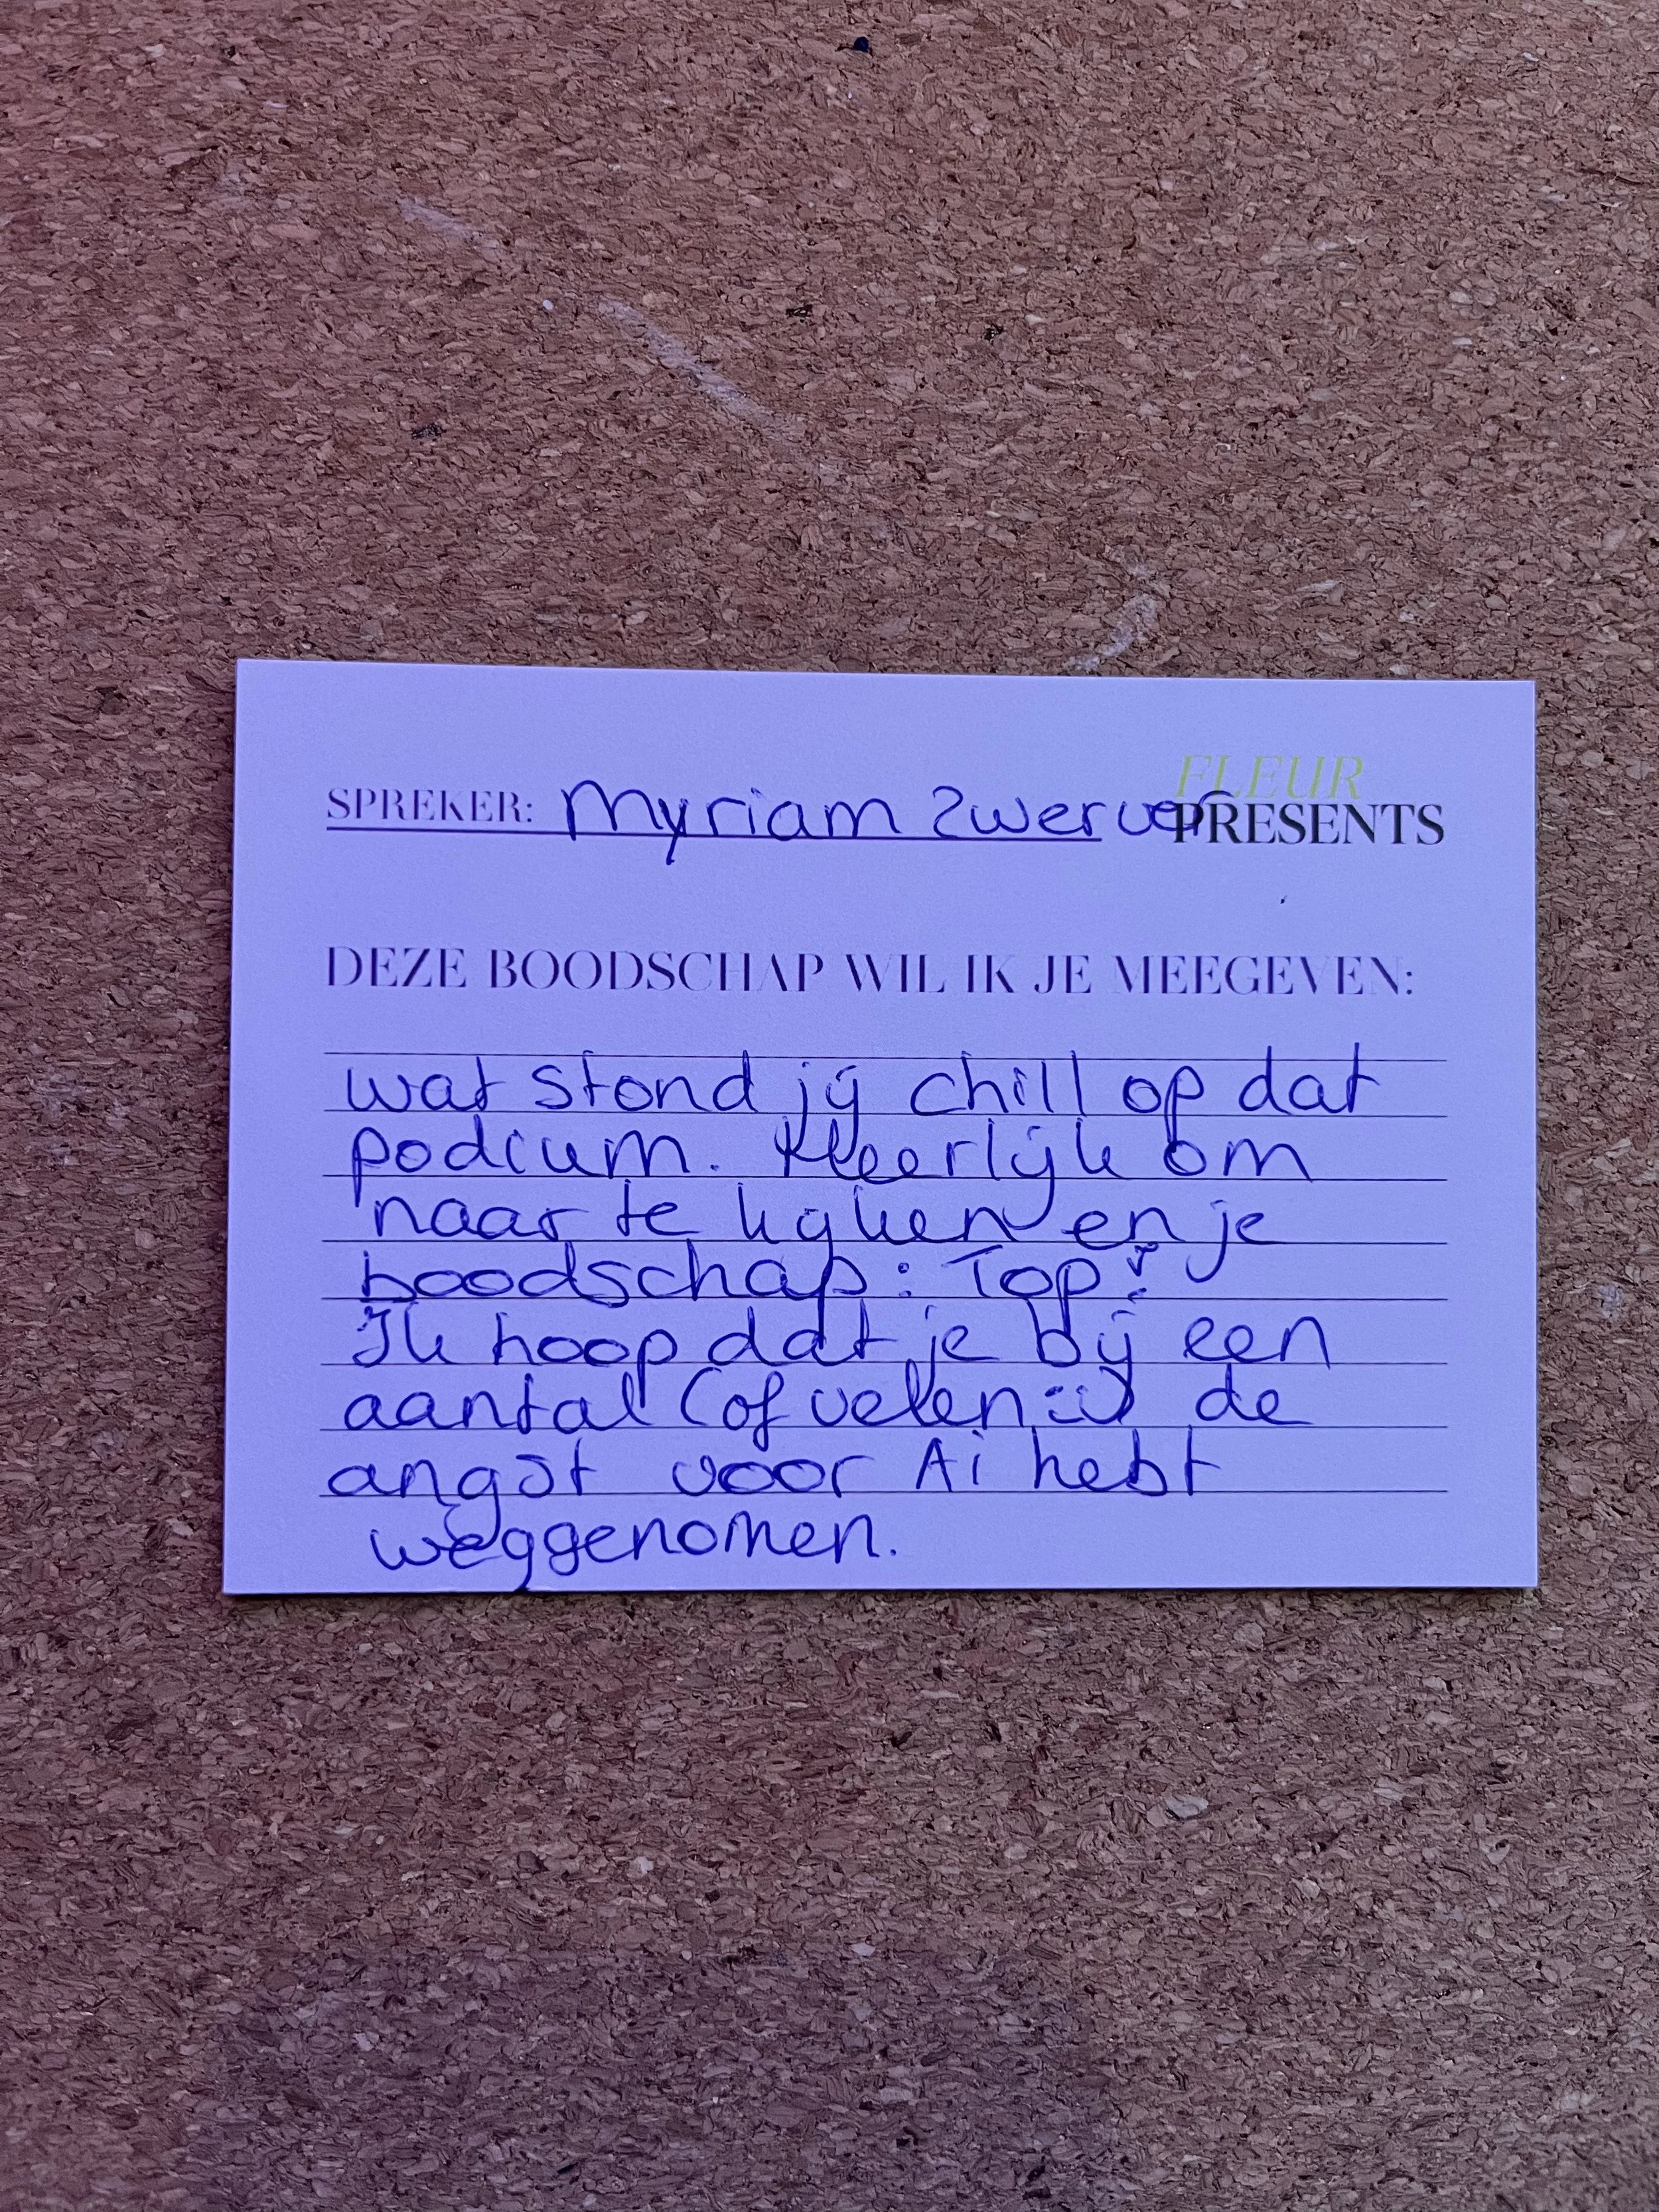 FLEUR
SPREKER: Myriam Zwerver PRESENTS
DEZE BOODSCHAP WIL IK JE MEEGEVEN:
wat stond jij chill op dat
podium. Heerlijk om
naar te kijken en je
boodschap: Top!
Ik hoop dat je bij een
aantal (of velen :-)) de
angst voor Ai hebt
weggenomen.